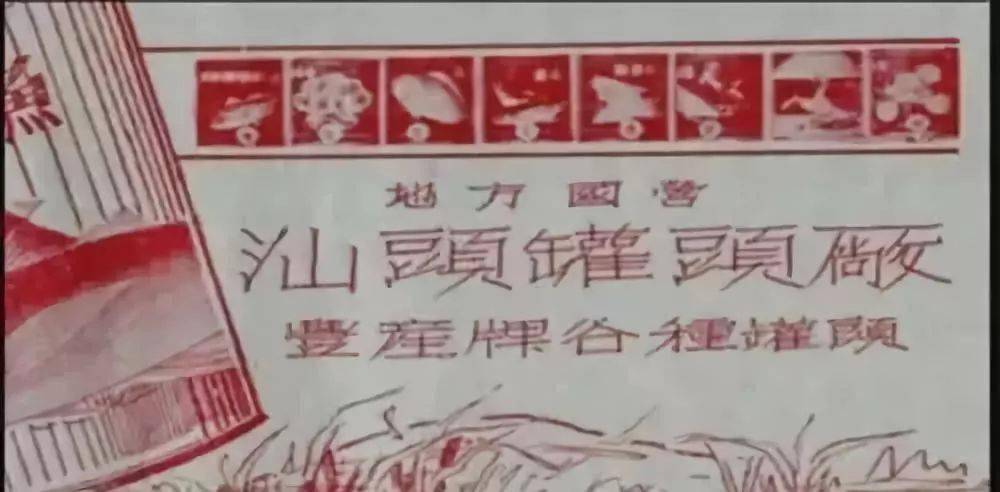 地方國營
汕頭罐頭廠
豐產牌各種罐頭